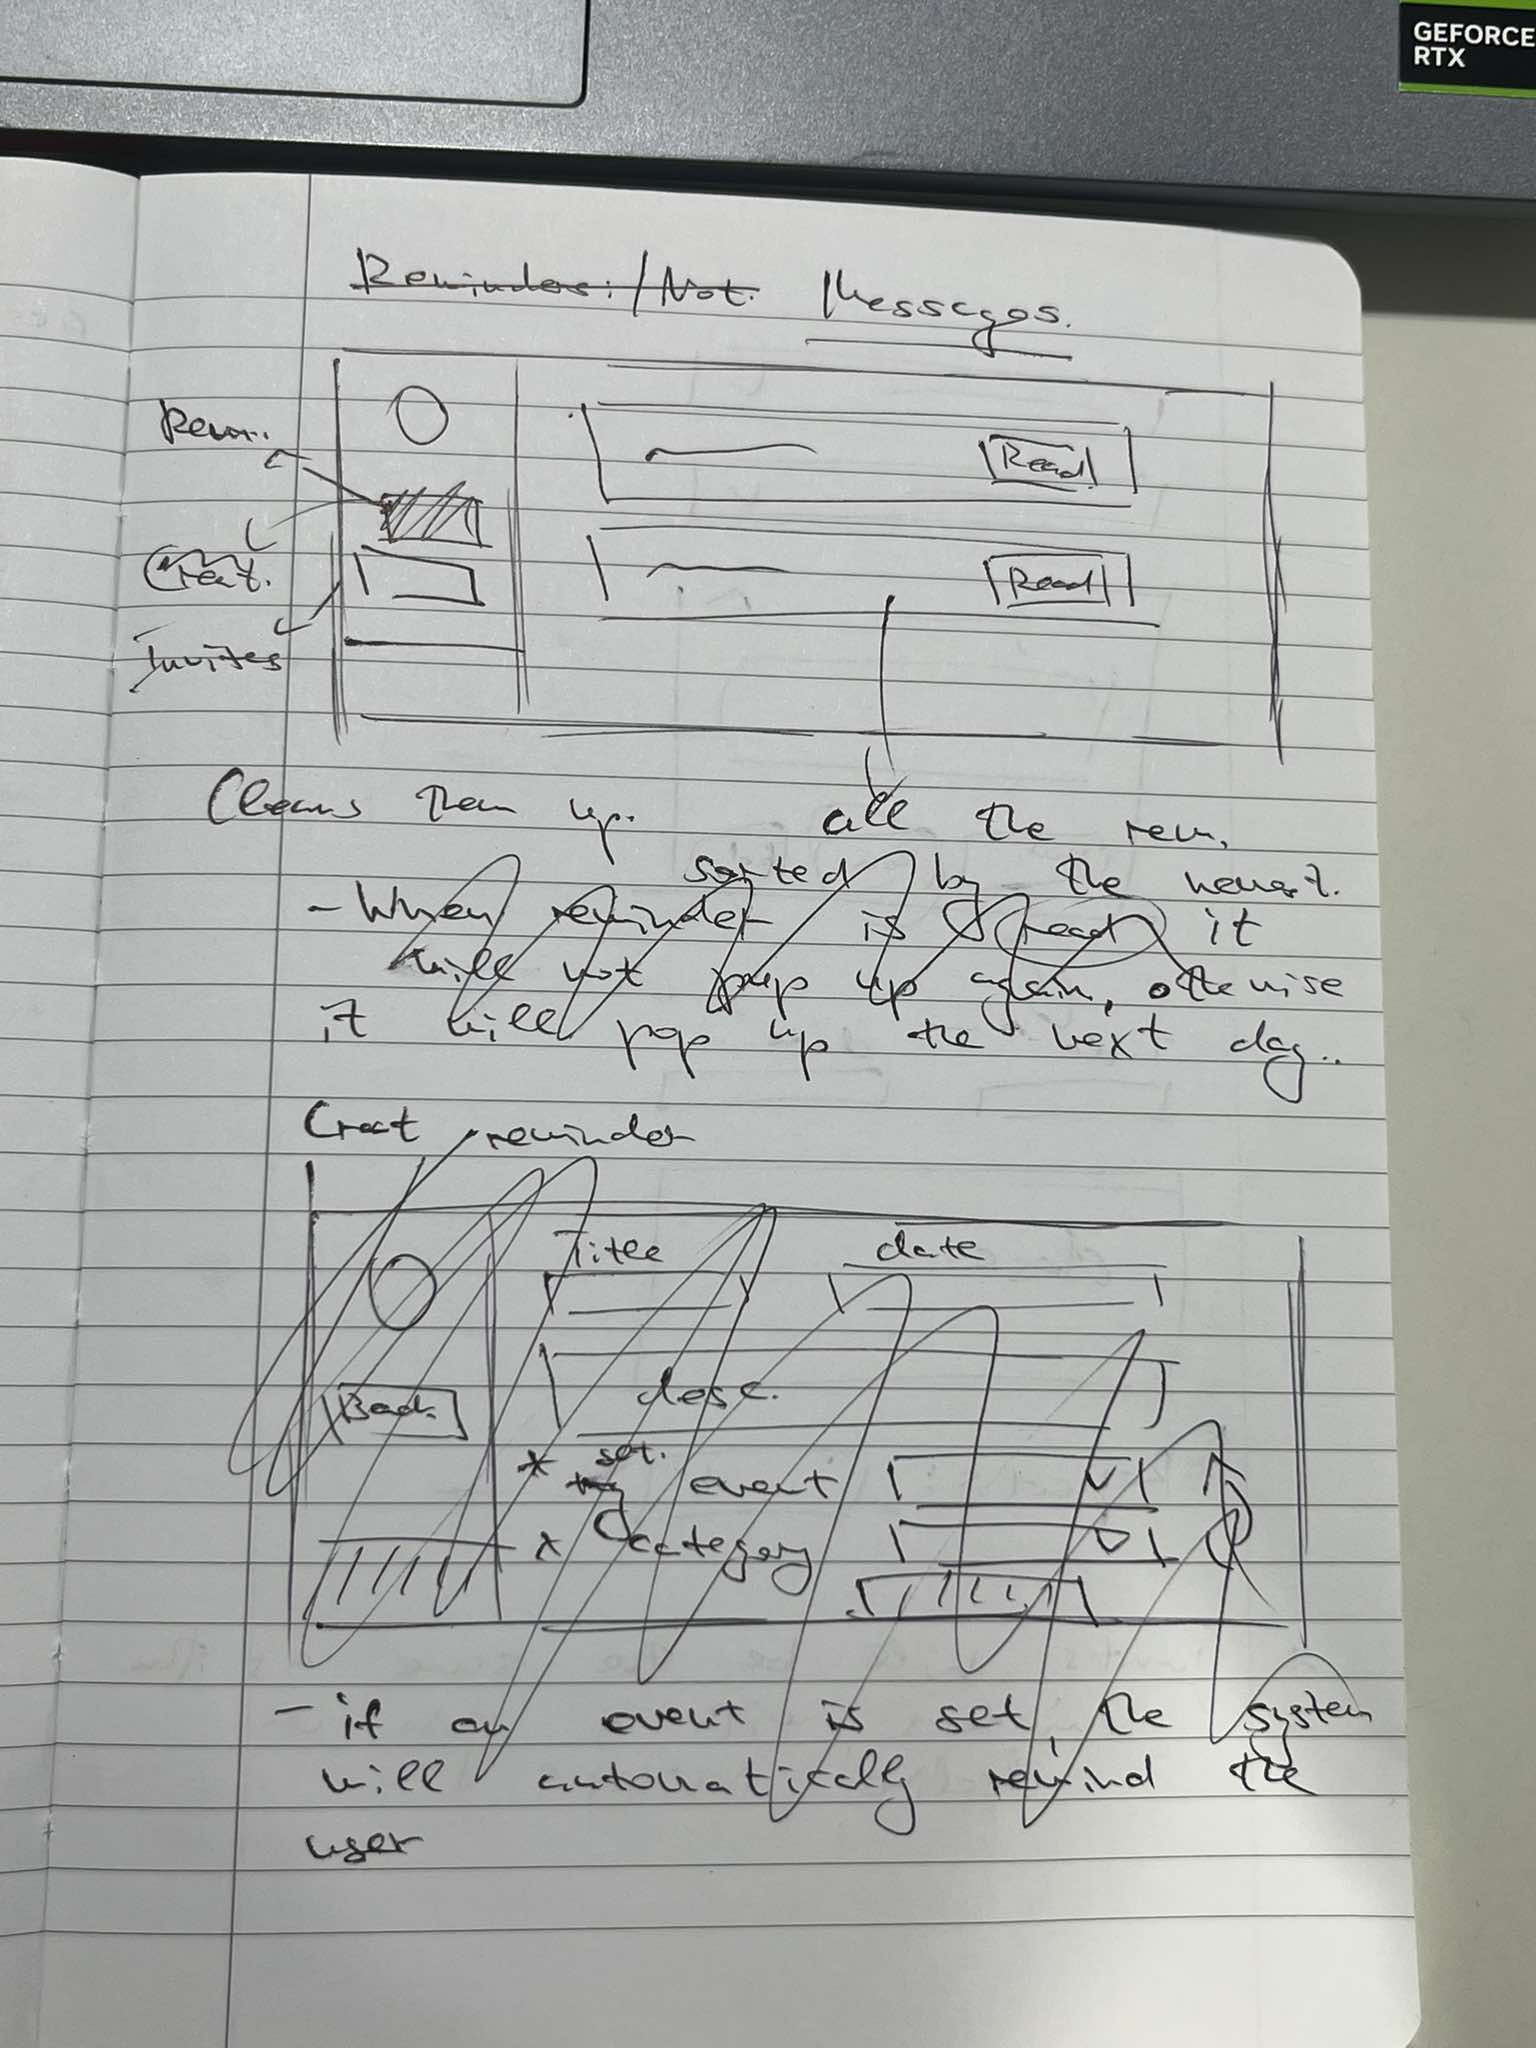 GEFORCE
RTX
Reminders: / Not. Messages.
Rem.
Read
Creat.
Read
Invites
Cleans them up.
all the rem.
sorted by the newest.
- When reminder is read it
will not pup up again, othewise
it will pop up the next day..
Creat reminder
Title date
desc.
Back
* set. event
* category
- if an event is set, the system
will automatically remind the
user